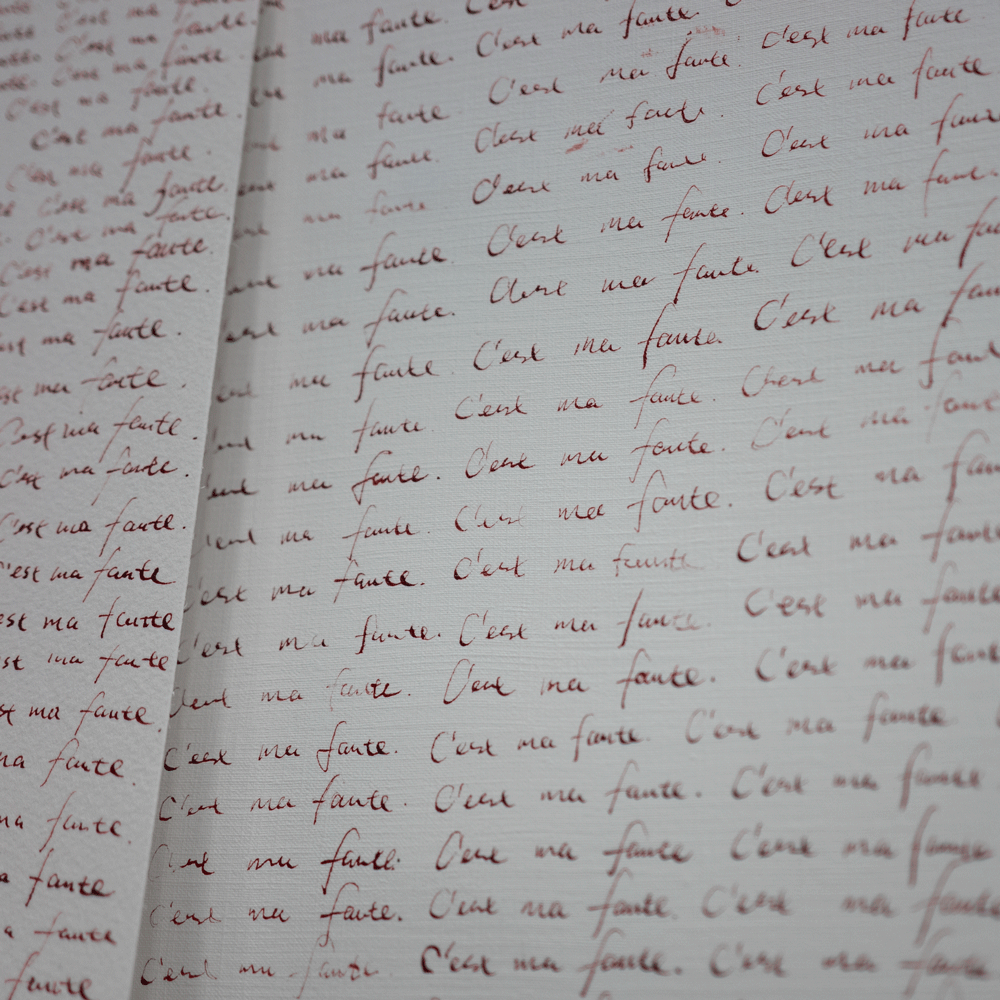 C'est ma faute.
C'est ma faute.
C'est ma faute.
C'est ma faute.
C'est ma faute.
C'est ma faute.
C'est ma faute.
C'est ma faute.
C'est ma faute.
est ma faute.
est ma faute.
C'est ma faute.
C'est ma faute.
C'est ma faute.
C'est ma faute
est ma faute
st ma faute
st ma faute.
ma faute.
ma faute.
a faute
a faute
faute
ma faute. C'est
ma faute. C'est ma faute.
ma faute. C'est ma faute. C'est ma faute
ma faute. C'est ma faute. C'est ma faute
ma faute C'est ma faute. C'est ma faute
ma faute. C'est ma faute. C'est ma faute.
est ma faute. C'est ma faute. C'est ma
est ma faute. C'est ma faute. C'est ma
est ma faute. C'est ma faute. C'est ma faut
est ma faute. C'est ma faute. C'est ma faute
C'est ma faute. C'est ma faute. C'est ma
C'est ma faute. C'est ma faute C'est ma faute
C'est ma faute. C'est ma faute. C'est ma faute
C'est ma faute. C'est ma faute. C'est ma faute
C'est ma faute. C'est ma faute. C'est ma faute
C'est ma faute. C'est ma faute. C'est ma faute
C'est ma faute. C'est ma faute C'est ma faute
C'est ma faute. C'est ma faute. C'est ma faute
C'est ma faute. C'est ma faute. C'est ma faute